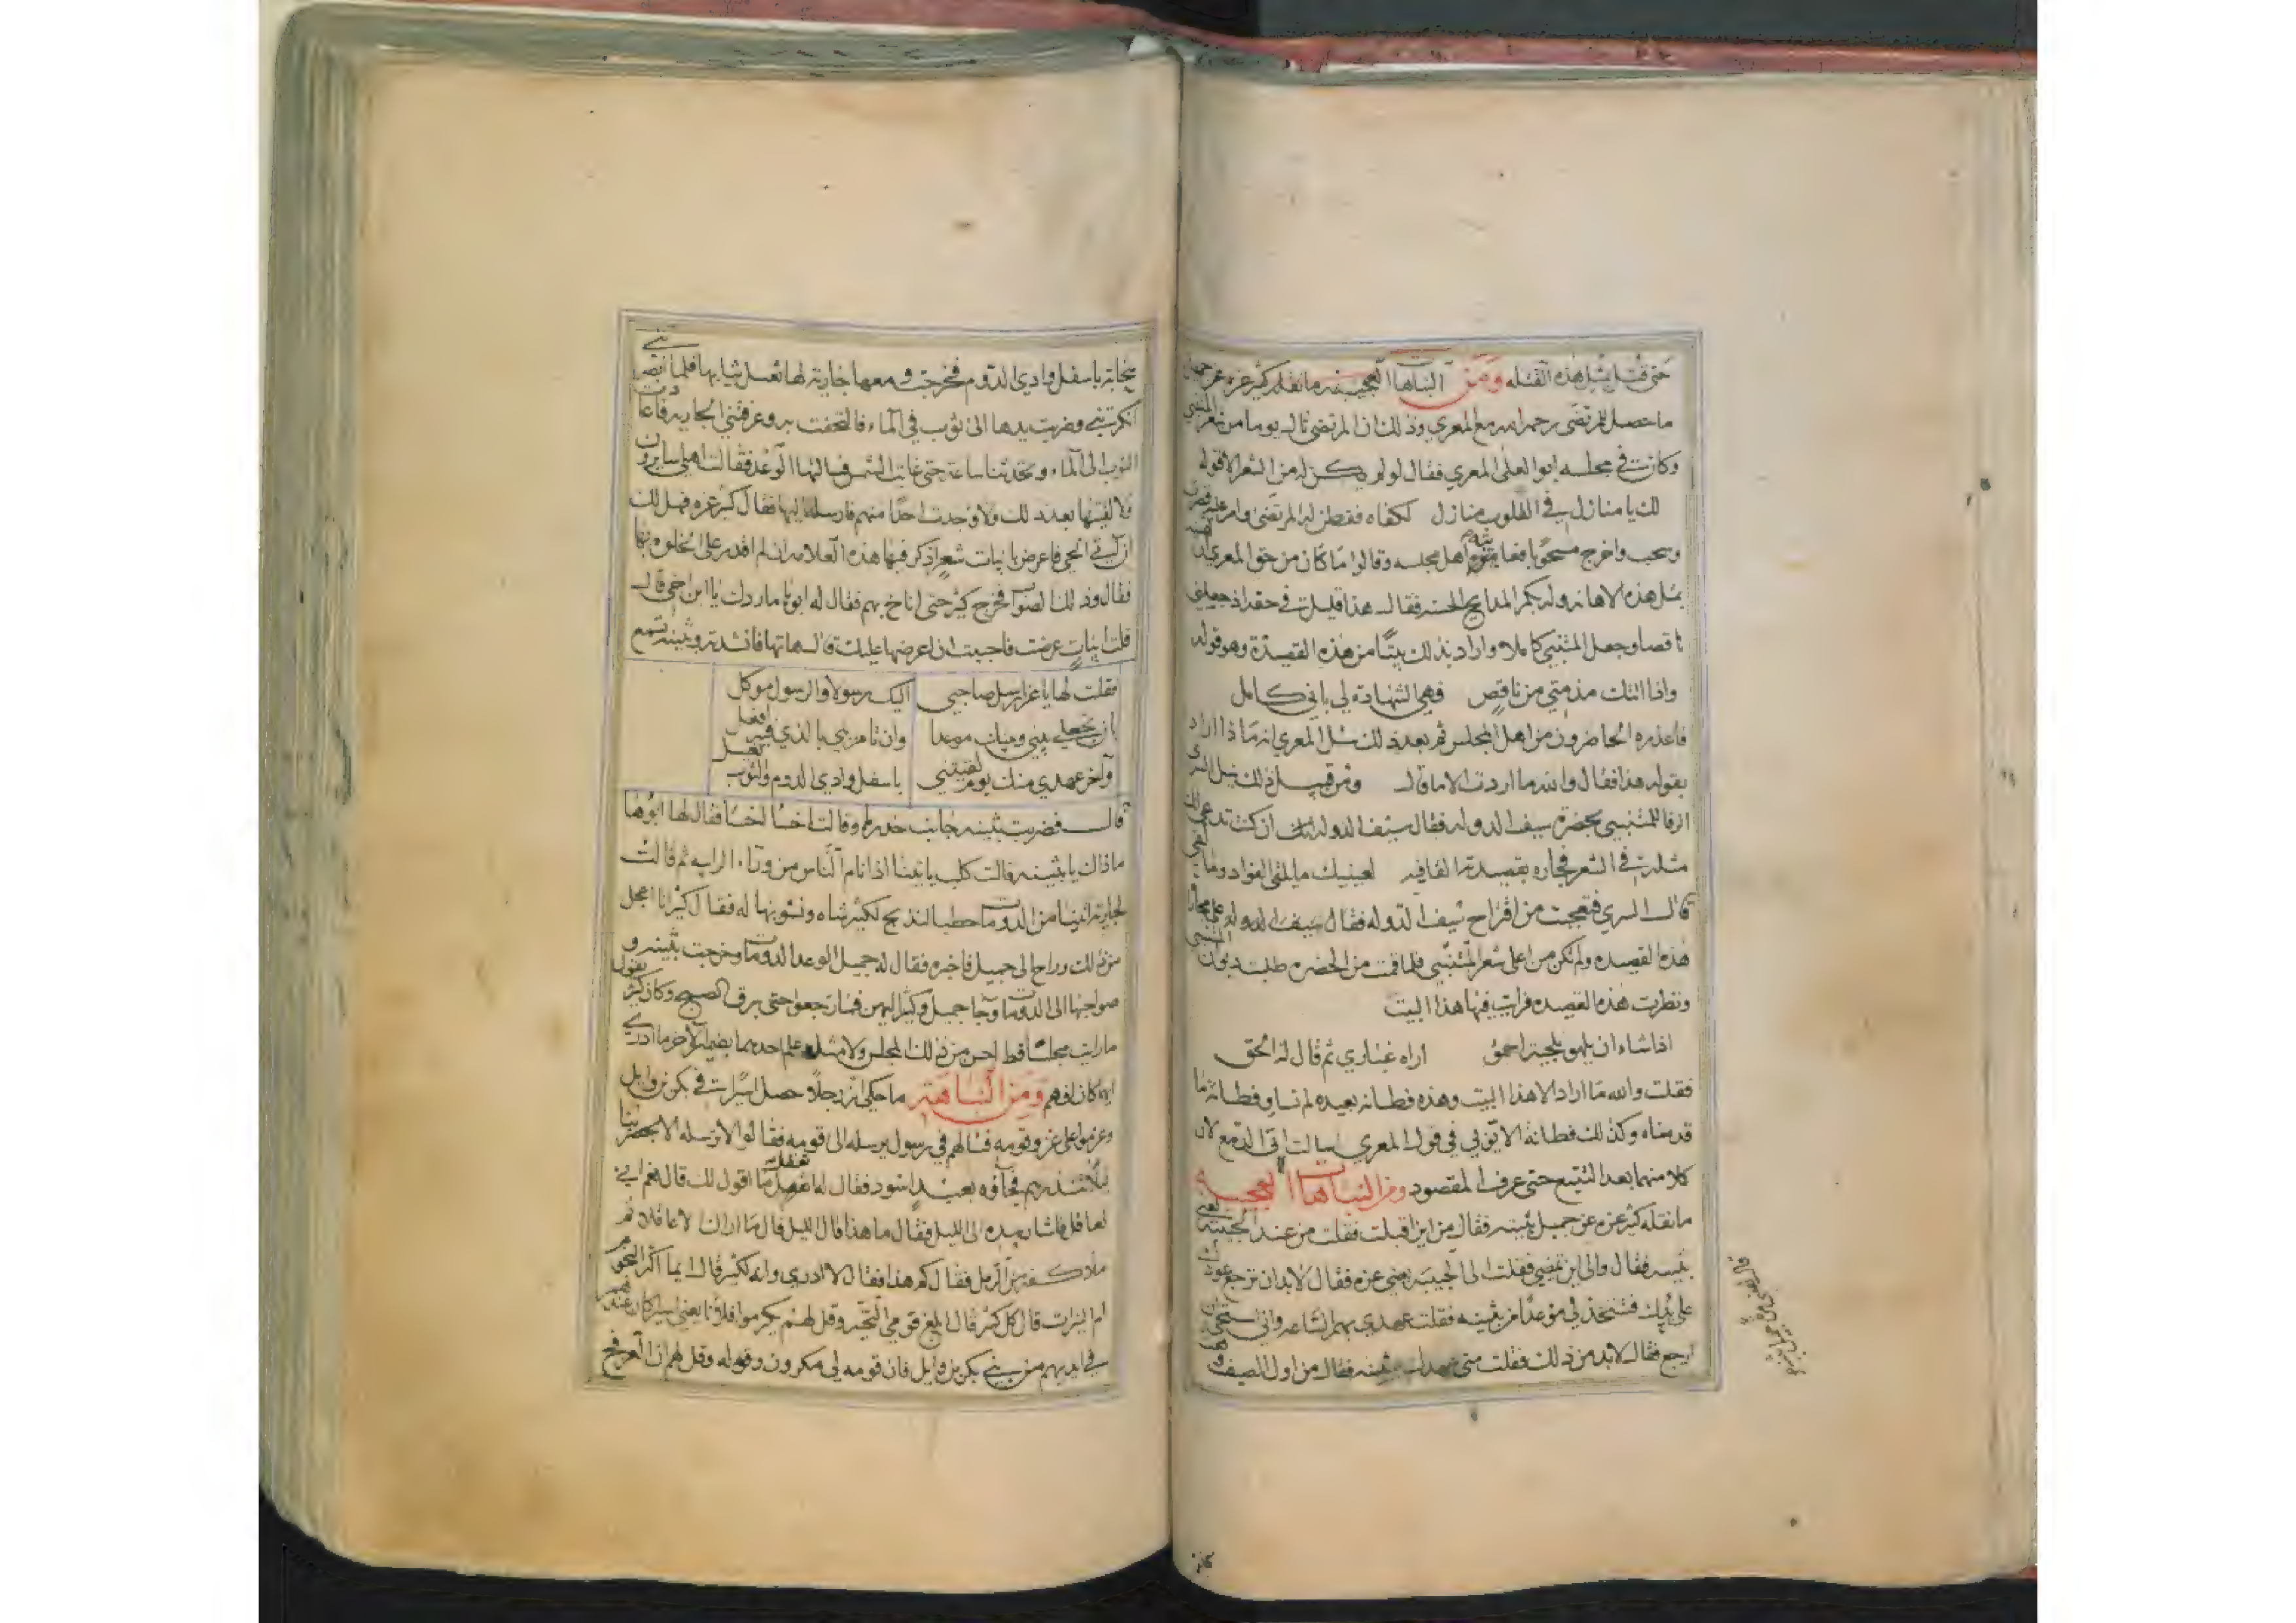 حتى قتل بمثل هذه القتله ومن النباهات العجيبه ما نقله كثير عزه عن جميل
ما حصل للمرتضى رحمه الله مع المعري وذلك ان المرتضى نال يوما من شعر المتنبي
وكان في مجلسه ابو العلى المعري فقال لو لم يكن له من الشعر الا قوله
لك يا منازل في القلوب منازل لكفاه ففطن له المرتضى وامر
وسحب واخرج مسحوبا اهل مجلسه وقالوا ما كان من حق المعري
مثل هذه الاهانه وله بكم المدايح الحسنه فقال هذا قليل في حقه اذ جعلني
ناقصا وجعل المتنبي كاملا واراد بذلك بيتا من هذه القصيدة وهو قوله
واذا اتتك مذمتي من ناقص فهي الشهادة لي باني كامل
فاعذره الحاضرون من اهل المجلس ثم بعد ذلك سئل المعري انه ماذا اراد
بقوله هذا فقال والله ما اردت الا ما قال ومن قبيل ذلك السرى
الرفا للمتنبي بحضرة سيف الدوله فقال سيف الدوله ان كنت تدعي انك
مثله في الشعر فجاره بقصيدته القافيه لعينيك ما يلقى الفواد وما لقي
قال السري فتعجبت من اقتراح سيف الدوله فقال سيف الدوله
هذه القصيده ولم تكن من اعلى شعر المتنبي فلما قمت من الحضره طلبت ديوان المتنبي
ونظرت هذه القصيده فرايت فيها هذا البيت
اذا شاء ان يلهو بلحية احمق اراه غباري ثم قال له الحق
فقلت والله ما اراد الا هذا البيت وهذه فطانه بعيده لم تساو فطانة ما
قدمناه وكذلك فطانة الا في قول المعري اسالت اتي الدمع لان
كلا منهما بعد التتبع حتى عرف المقصود ومن النباهات العجيبه
ما نقله كثير عزه عن جميل بثينه فقال من اين اقبلت فقلت من عند الحبيبة يعني
بثينه فقال والى اين تمضي فقلت الى الحبيبه يعني عزه فقال لا بد ان ترجع عودك
على بدئك فتتخذ لي موعدا من بثينه فقلت عهدي بهم الساعه واني استحي ان
ارجع فقال لا بد من ذلك فقلت متى عهدك ببثينه فقال من اول الصيف
سحابة باسفل وادي الدوم فخرجت ومعها جارية لها تغسل ثيابها فلما ابصرتني
انكرتني وضربت يدها الى ثوب في الماء فالتحفت به وعرفتني الجاريه فاعادت
الثوب الى الماء وتحدثنا ساعة حتى غابت الشمس فسالتها الوعد فقالت اهلي سايرون
فلا لقيتها بعد ذلك ولا وجدت احدا منهم فارسله اليها فقال كثير عزه فهل لك
ان آتي الحي فاعرض بابيات شعر اذكر فيها هذه العلامة ان لم اقدر على الخلوه بها
فقال وذلك الصواب فخرج كثير حتى اناخ بهم فقال له ابوها ما ردك يا ابن اخي قال
قلت ابيات عرضت فاحببت ان اعرضها عليك قال هاتها فانشدته وبثينه تسمع
فقلت لها يا عز ارسل صاحبي اليك رسولا والرسول موكل
بان تجعلي بيني وبينك موعدا وان تامريني بالذي فيه افعل
وآخر عهدي منك يوم لقيتني باسفل وادي الدوم والثوب يغسل
قال فضربت بثينه جانب خدرها وقالت اخسا اخسا فقال لها ابوها
ماذاك يا بثينه قالت كلب ياتينا اذا نام الناس من وراء الرابيه ثم قالت
لجارية ائتينا من الدومات حطبا لنذبح لكثير شاه ونشويها له فقال كثير انا اعجل
من ذلك وراح الى جميل فاخبره فقال له جميل الوعد الدومات وخرجت بثينه و
صواحبها الى الدومات وجا جميل وكثير اليهن فما رجعوا حتى برق الصبح وكان كثير يقول
ما رايت مجلسا قط احسن من ذلك المجلس ولا مثل علم احدهما بضمير الآخر ما ادري
ايهما كان افهم ومن النباهة ما حكي ان رجلا حصل اسيرا في بكر بن وايل
وعزموا على غزو قومه فسالهم في رسول يرسله الى قومه فقالوا لا ترسله الا بحضرتنا
لئلا تنذرهم فجاؤه بعبد اسود فقال له اتعقل ما اقول لك قال نعم اني
لعاقل فاشار بيده الى الليل فقال ما هذا قال الليل قال ما اراك الا عاقلا ثم
ملا كفيه من الرمل فقال كم هذا فقال لا ادري وانه لكثير قال ايما اكثر النجوم
ام النيران قال كل كثير قال ابلغ قومي التحية وقل لهم يكرموا فلانا يعني اسيرا كان عندهم
في ايديهم من بني بكر بن وايل فان قومه لي مكرمون وقل لهم ان العرفج